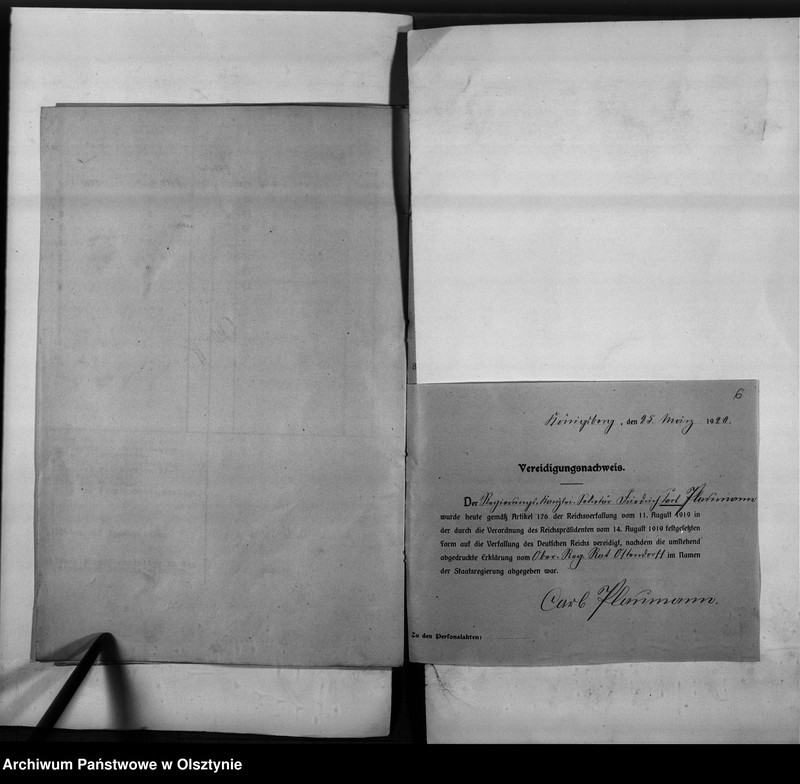 6
Königsberg, den 25. März 1920.
Vereidigungsnachweis.
Der Regierungs-Kanzlei-Sekretär Friedrich Carl Plaumann
wurde heute gemäß Artikel 176 der Reichsverfassung vom 11. August 1919 in
der durch die Verordnung des Reichspräsidenten vom 14. August 1919 festgesetzten
Form auf die Verfassung des Deutschen Reichs vereidigt, nachdem die umstehend
abgedruckte Erklärung vom Ober-Reg. Rat Ostendorff im Namen
der Staatsregierung abgegeben war.
Carl Plaumann.
Zu den Personalakten:
Archiwum Państwowe w Olsztynie